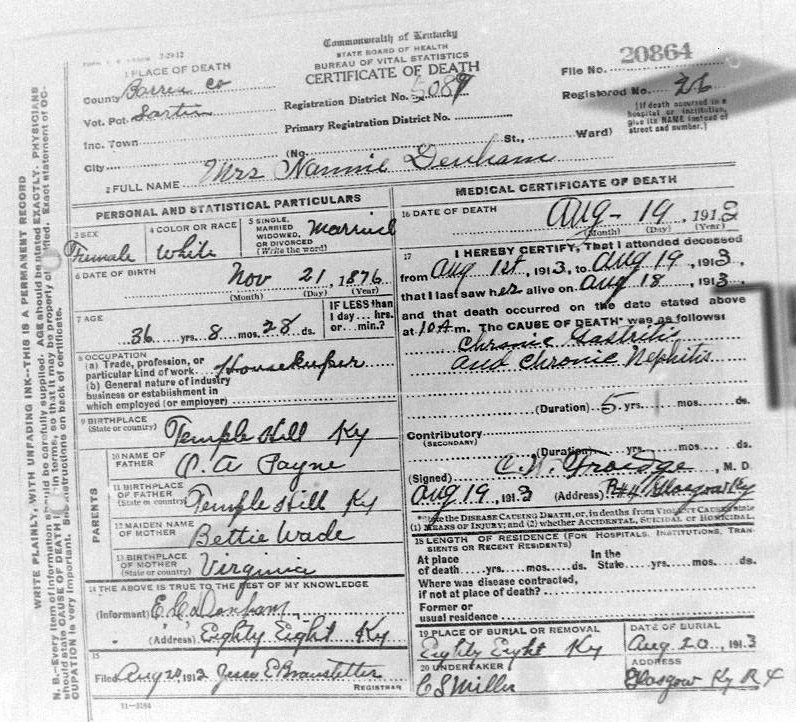 Commonwealth of Kentucky
STATE BOARD OF HEALTH
BUREAU OF VITAL STATISTICS
CERTIFICATE OF DEATH
1 PLACE OF DEATH
County Barren Co
Vot. Pct.
Inc. Town
City
Registration District No. 5089
Primary Registration District No.
(No. St., Ward)
File No. 20864
Registered No. 26
(If death occurred in a hospital or institution, give its NAME instead of street and number.)
2 FULL NAME Mrs Nannie Denham
PERSONAL AND STATISTICAL PARTICULARS
3 SEX
Female
4 COLOR OR RACE
White
5 SINGLE, MARRIED WIDOWED, OR DIVORCED (Write the word)
Married
6 DATE OF BIRTH
Nov 21, 1876
(Month) (Day) (Year)
7 AGE
36 yrs. 8 mos. 28 ds.
IF LESS than 1 day... hrs. or... min.?
8 OCCUPATION
(a) Trade, profession, or particular kind of work Housekeeper
(b) General nature of industry business or establishment in which employed (or employer)
9 BIRTHPLACE
(State or country) Temple Hill Ky
PARENTS
10 NAME OF FATHER Payne
11 BIRTHPLACE OF FATHER (State or country) Temple Hill Ky
12 MAIDEN NAME OF MOTHER Bettie Wade
13 BIRTHPLACE OF MOTHER (State or country) Virginia
14 THE ABOVE IS TRUE TO THE BEST OF MY KNOWLEDGE
(Informant) Denham
(Address) Eighty Eight Ky
15
Filed Aug 20, 1913 Branstetter
REGISTRAR
11-3184
MEDICAL CERTIFICATE OF DEATH
16 DATE OF DEATH Aug - 19, 1913
(Month) (Day) (Year)
17 I HEREBY CERTIFY, That I attended deceased
from Aug 1st, 1913, to Aug 19, 1913,
that I last saw her alive on Aug 18, 1913,
and that death occurred on the date stated above
at 10 A m. The CAUSE OF DEATH* was as follows:
Chronic Gastritis
and Chronic Nephitis
(Duration) 5 yrs. mos. ds.
Contributory
(SECONDARY)
(Duration) yrs. mos. ds.
(Signed) C. W. Froedge, M. D.
Aug 19, 1913 (Address) R#4 Glasgow Ky
*State the DISEASE CAUSING DEATH, or, in deaths from VIOLENT CAUSES state (1) MEANS OF INJURY; and (2) whether ACCIDENTAL, SUICIDAL OR HOMICIDAL.
18 LENGTH OF RESIDENCE (FOR HOSPITALS, INSTITUTIONS, TRANSIENTS OR RECENT RESIDENTS)
At place of death....yrs....mos....ds. In the State....yrs....mos....ds.
Where was disease contracted, if not at place of death?
Former or usual residence
19 PLACE OF BURIAL OR REMOVAL
Eighty Eight Ky
DATE OF BURIAL
Aug 20, 1913
20 UNDERTAKER
C S Miller
ADDRESS
Glasgow Ky R 4
WRITE PLAINLY, WITH UNFADING INK—THIS IS A PERMANENT RECORD
N. B.—Every item of information should be carefully supplied. AGE should be stated EXACTLY. PHYSICIANS
should state CAUSE OF DEATH in terms, so that it may be properly Exact statement of OC-
CUPATION is very important. See instructions on back of certificate.